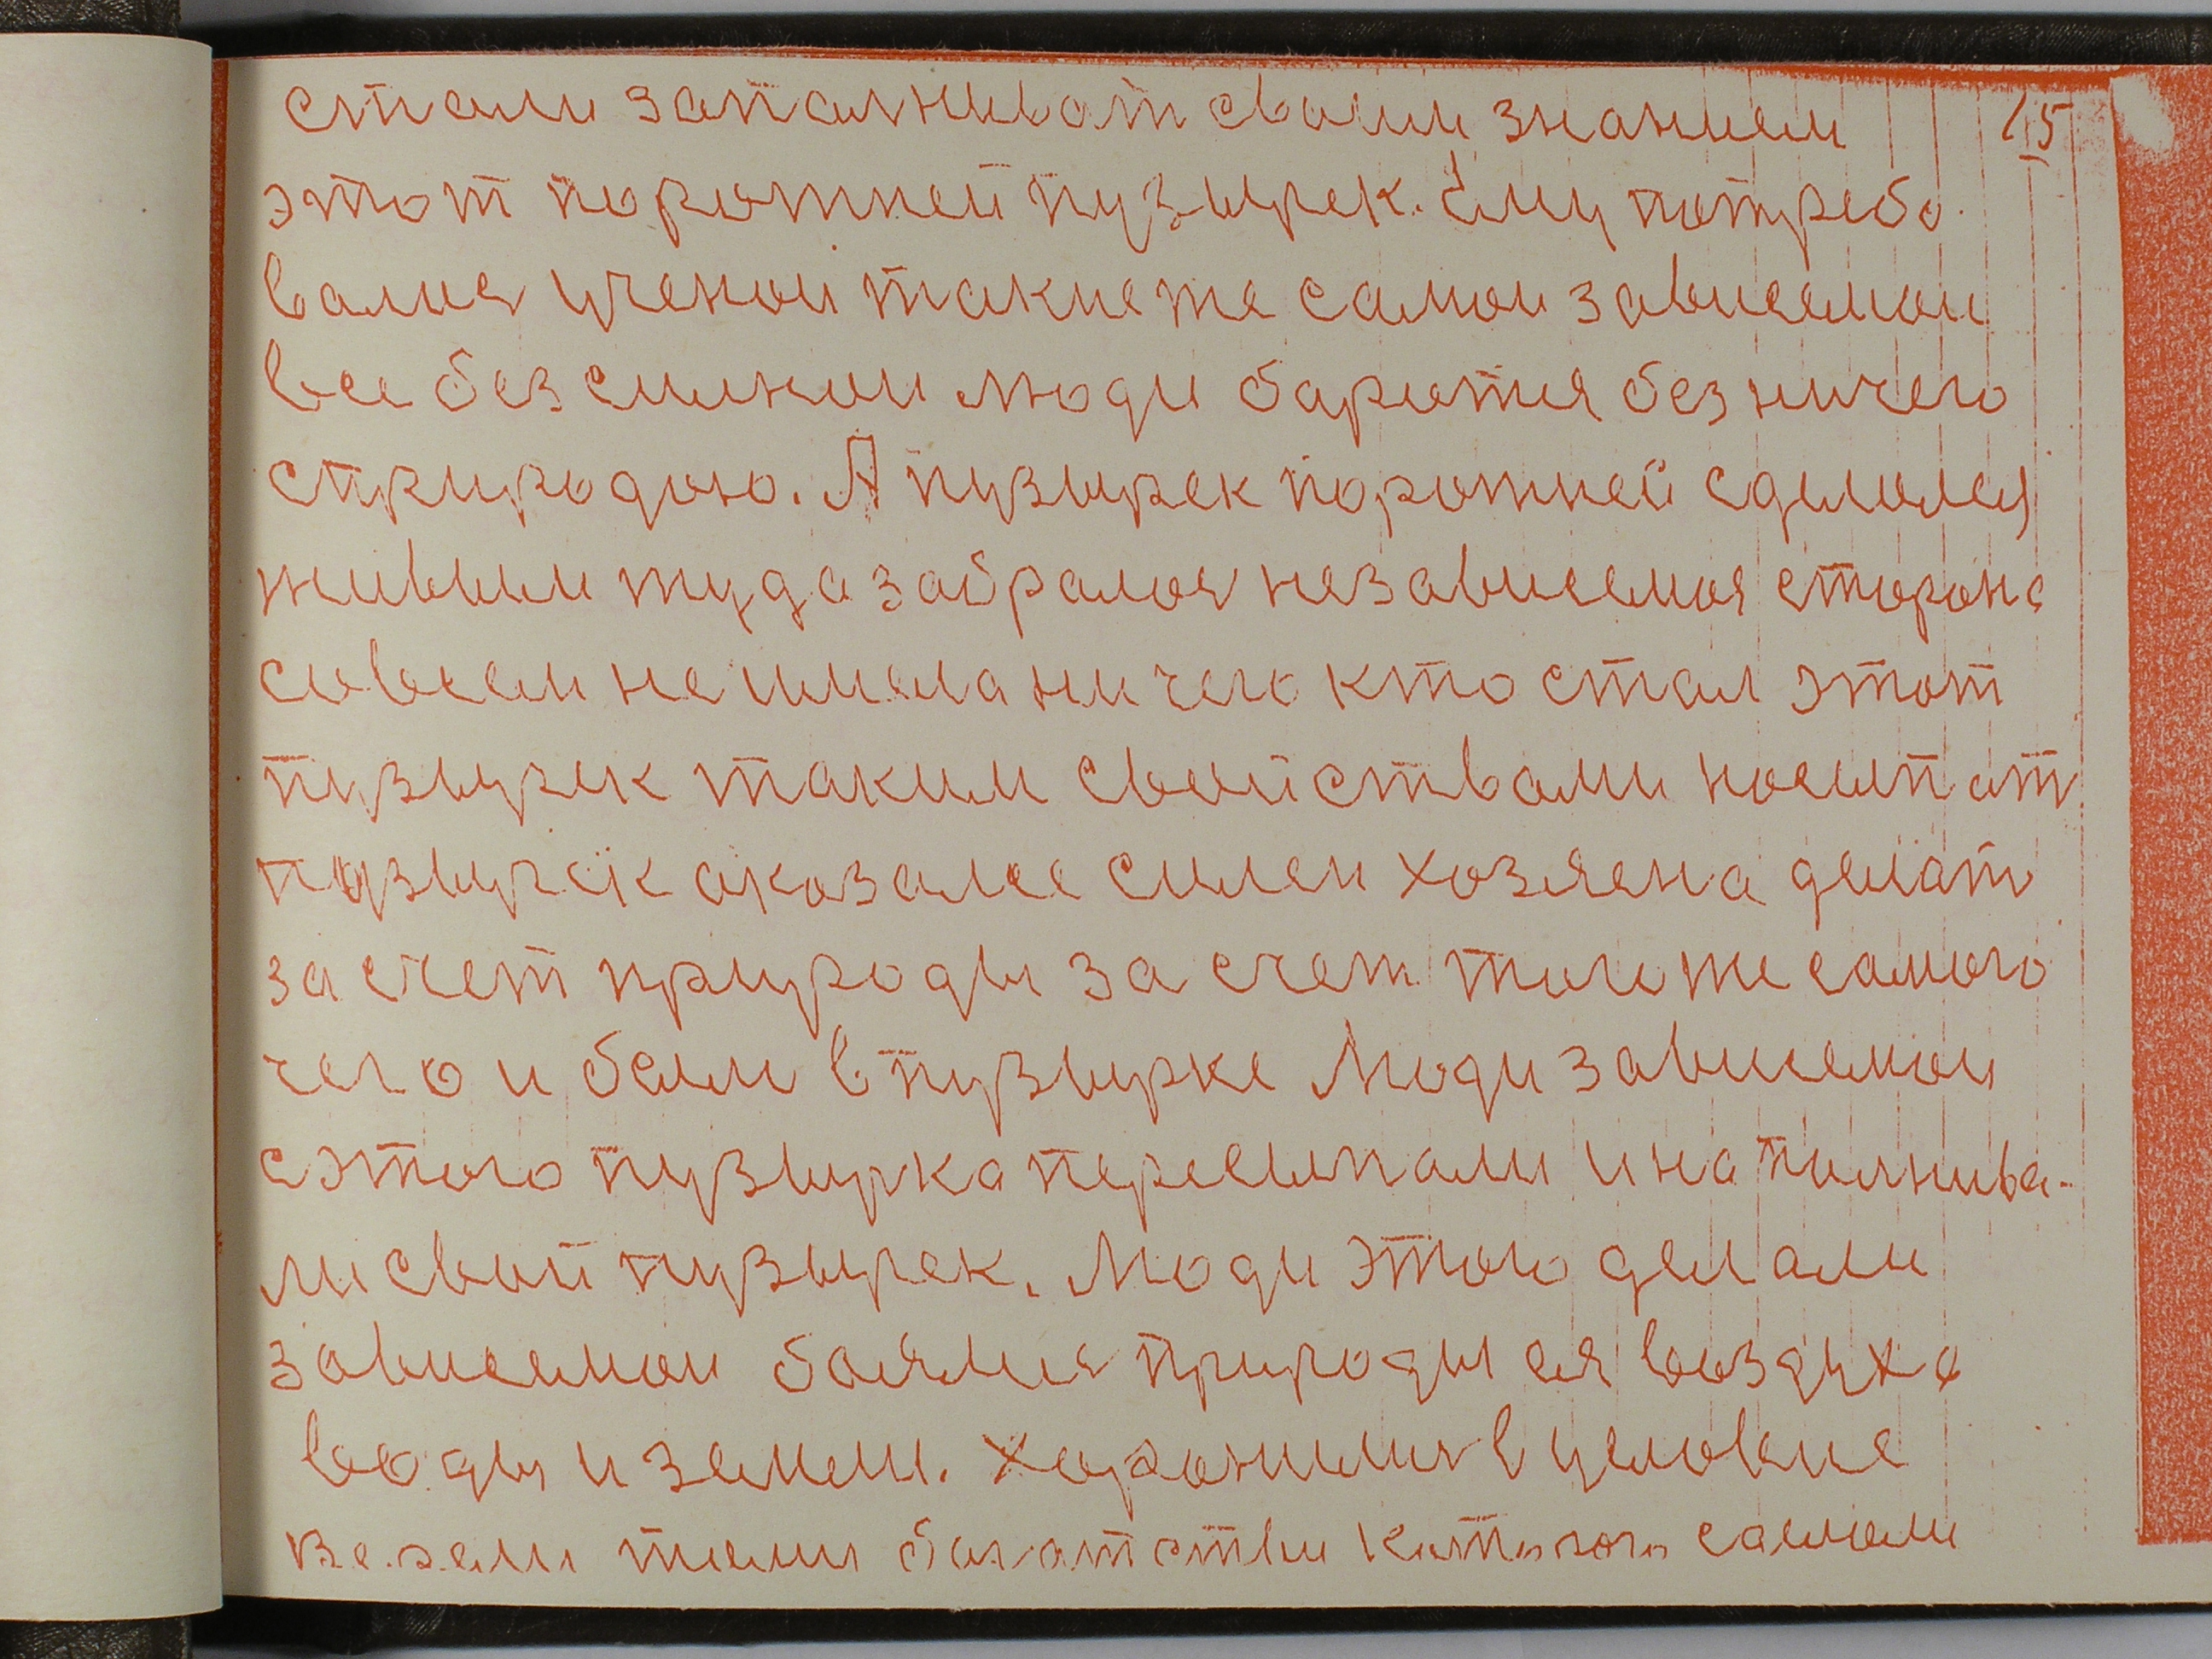 стали запалниват своим знанием 15
этот порожней пузырек. Ему потребо-
валися ученои такие же самои зависемои
все без силнои люди барются без ничего
сприродою. А пузырек порожней сделолся
живым туда забралоя независемоя сторона
совсем не имела ни чего кто стал этот
пузырек таким свойствами носыпат
пузырек аказалсе силен хозяена делат
за счет природы за счет того же самого
чего и бели в пузырке Люди зависемои
сэтого пузырка пересыпали и на полнива-
ли свой пузырек. Люди этого делали
зависемои боялися природы ея воздуха
воды и земли. Хоронилися в условие
багатстви которого самами